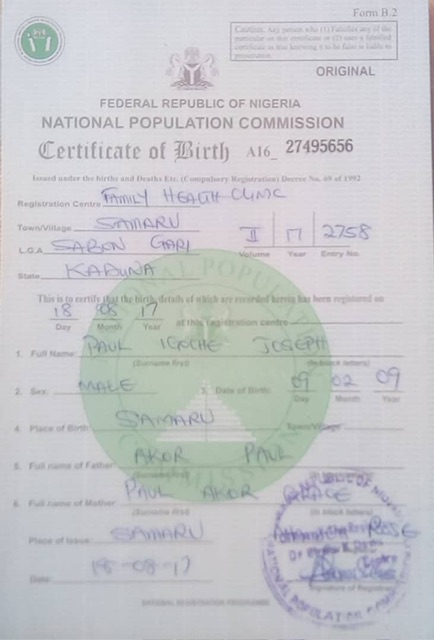 Form B.2
Caution: Any person who (1) Falsifies any of the
particular on this certificate or (2) uses a falsified
certificate as true knowing it to be false is liable to
prosecution.
ORIGINAL
FEDERAL REPUBLIC OF NIGERIA
NATIONAL POPULATION COMMISSION
Certificate of Birth A16_ 27495656
Issued under the births and Deaths Etc. (Compulsory Registration) Decree No. 69 of 1992
Registration Centre FAMILY HEALTH CLINIC
Town/Village SAMARU
L.G.A SABON GARI II 17 2758
Volume Year Entry No.
State KADUNA
This is to certify that the birth details of which are recorded herein has been registered on
18 08 17 at this registration centre
Day Month Year
1. Full Name: PAUL IGOCHE JOSEPH
(Surname first) (In block letters)
2. Sex: MALE 3. Date of Birth: 09 02 09
Day Month Year
4. Place of Birth SAMARU Town/Village
5. Full name of Father: AKOR PAUL
6. Full name of Mother: PAUL AKOR GRACE
(Surname first) (In block letters)
Place of Issue: SAMARU ROSE
Date: 18-08-17
Signature of Registrar
NATIONAL REGISTRATION PROGRAMME
NATIONAL POPULATION COMMISSION